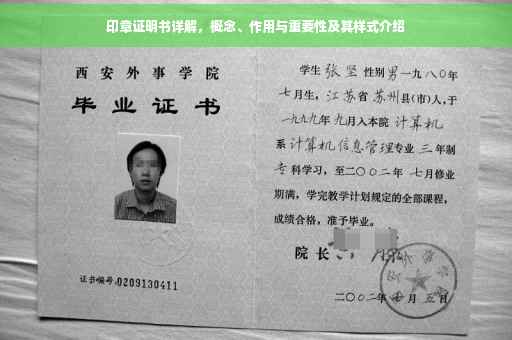 印章证明书详解，概念、作用与重要性及其样式介绍
西安外事学院
毕业证书
证书编号:0209130411
学生 张坚 性别 男 一九八〇年
七月生，江苏省 苏州县(市)人，于
一九九九年 九月入本院 计算机
系 计算机信息管理专业 三 年制
专科学习，至二〇〇二年 七月修业
期满，学完教学计划规定的全部课程，
成绩合格，准予毕业。
院长
二〇〇二年 月 五日